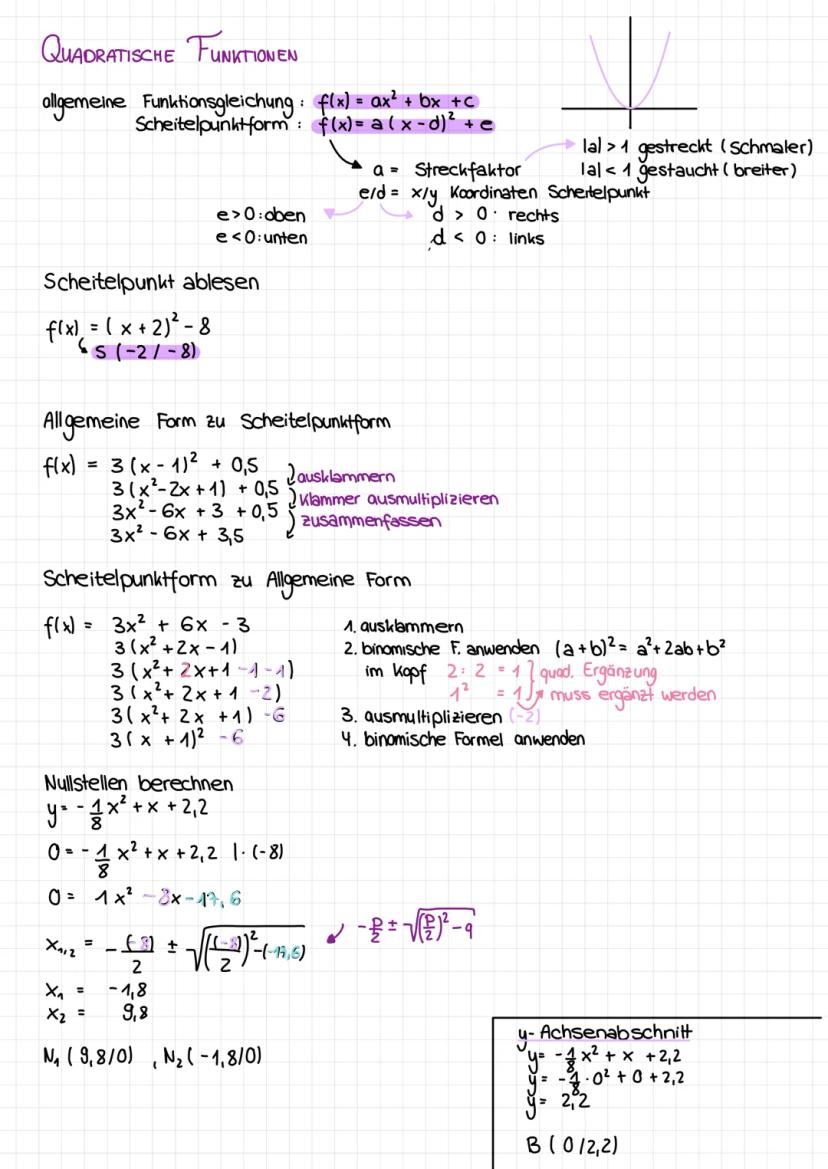 Quadratische Funktionen
allgemeine Funktionsgleichung: f(x) = ax² + bx + c
Scheitelpunktform: f(x) = a(x-d)² + e
|a| > 1 gestreckt (schmaler)
a = Streckfaktor
|a| < 1 gestaucht (breiter)
e/d = x/y Koordinaten Scheitelpunkt
e > 0: oben
d > 0: rechts
e < 0: unten
d < 0: links
Scheitelpunkt ablesen
f(x) = (x + 2)² - 8
S (-2 / -8)
Allgemeine Form zu Scheitelpunktform
f(x) = 3(x - 1)² + 0,5
ausklammern
3(x² - 2x + 1) + 0,5
Klammer ausmultiplizieren
3x² - 6x + 3 + 0,5
zusammenfassen
3x² - 6x + 3,5
Scheitelpunktform zu Allgemeine Form
f(x) = 3x² + 6x - 3
3(x² + 2x - 1)
3(x² + 2x + 1 - 1 - 1)
3(x² + 2x + 1 - 2)
3(x² + 2x + 1) - 6
3(x + 1)² - 6
1. ausklammern
2. binomische F. anwenden (a + b)² = a² + 2ab + b²
im Kopf 2 : 2 = 1 } quad. Ergänzung
1² = 1 muss ergänzt werden
3. ausmultiplizieren (-2)
4. binomische Formel anwenden
Nullstellen berechnen
y = - 1/8 x² + x + 2,2
0 = - 1/8 x² + x + 2,2 | · (-8)
0 = 1x² - 8x - 17,6
x₁,₂ = - (-8)/2 ± √(((-8)/2)² - (-17,6))
- p/2 ± √((p/2)² - q)
x₁ = -1,8
x₂ = 9,8
N₁ (9,8/0) , N₂ (-1,8/0)
y-Achsenabschnitt
y = - 1/8 x² + x + 2,2
y = - 1/8 · 0² + 0 + 2,2
y = 2,2
B (0/2,2)